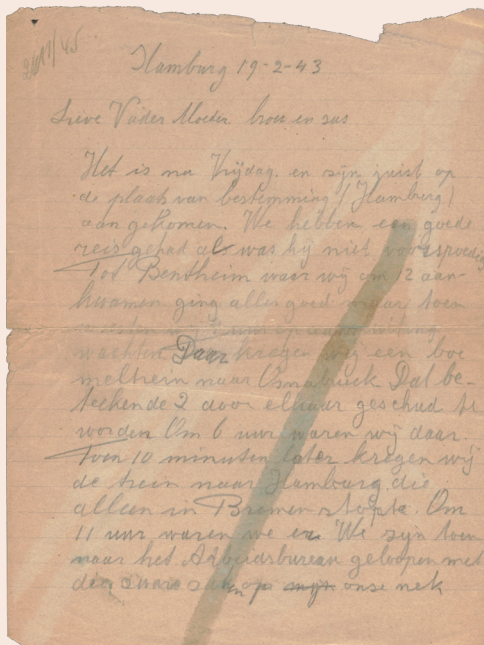 Hamburg 19-2-43
Lieve Vader Moeder broer en zus
Het is nu Vrijdag en zijn juist op
de plaats van bestemming (Hamburg)
aan gekomen. We hebben een goede
reis gehad al was hij niet voorspoedig
Tot Bentheim waar wij om 12 aan-
kwamen ging alles goed maar toen
wachten. Daar kregen wij een boe
meltrein naar Osnabruck Dat be-
teekende 2 door elkaar geschud te
worden Om 6 uur waren wij daar.
Toen 10 minuten later kregen wij
de trein naar Hamburg die
alleen in Bremen stopte. Om
11 uur waren we er. We zijn toen
naar het Arbeidsbureau geloopen met
die op onse nek